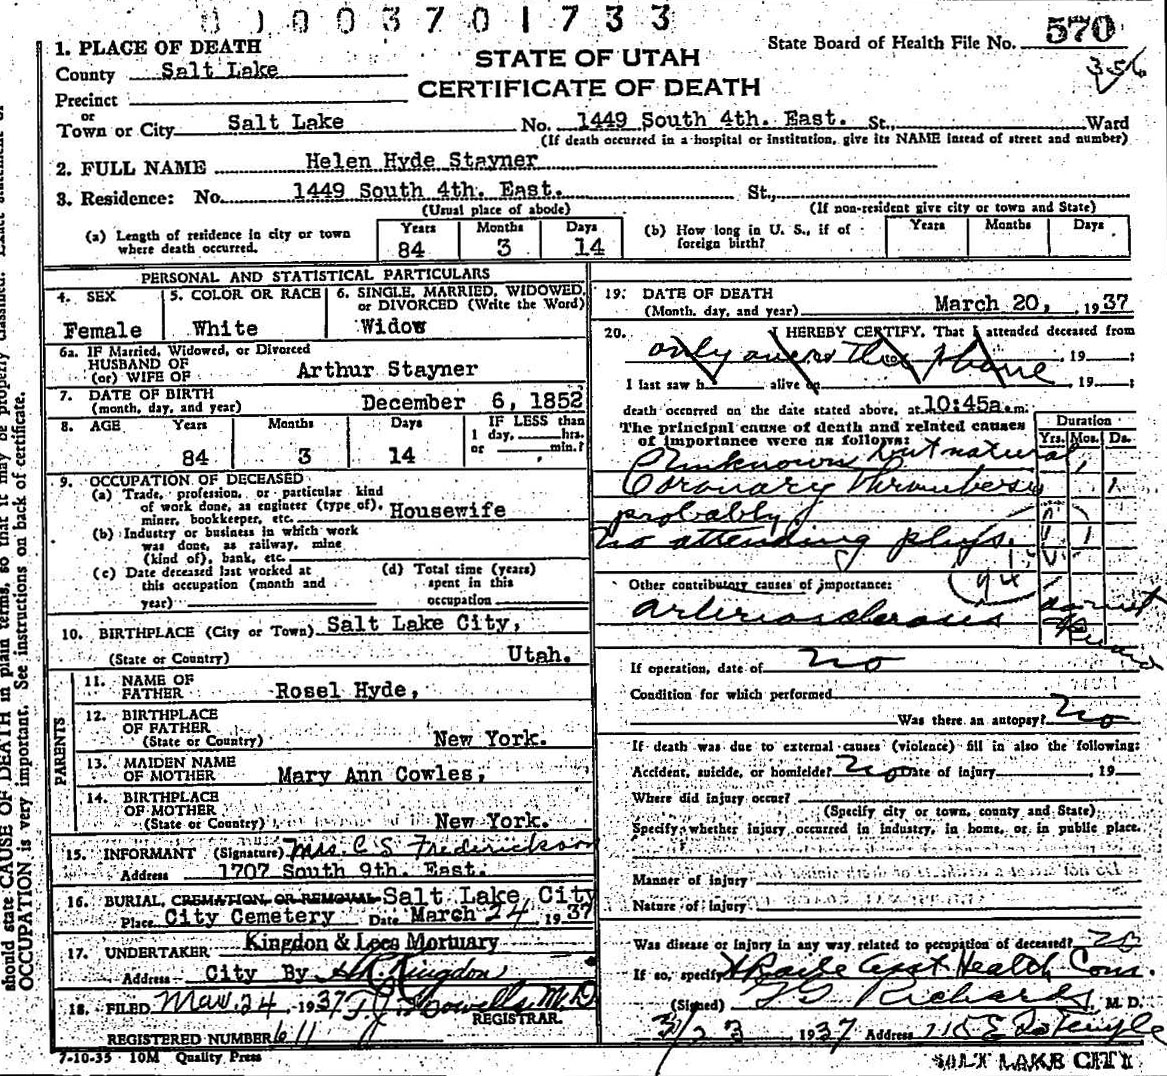 0003701733
1. PLACE OF DEATH
STATE OF UTAH
CERTIFICATE OF DEATH
State Board of Health File No. 570
356
County Salt Lake
Precinct
or
Town or City Salt Lake No. 1449 South 4th. East. St., Ward
(If death occurred in a hospital or institution, give its NAME instead of street and number)
2. FULL NAME Helen Hyde Stayner
3. Residence: No. 1449 South 4th. East. St.,
(Usual place of abode) (If non-resident give city or town and State)
(a) Length of residence in city or town where death occurred. Years 84 Months 3 Days 14
(b) How long in U. S., if of foreign birth? Years Months Days
PERSONAL AND STATISTICAL PARTICULARS
4. SEX Female
5. COLOR OR RACE White
6. SINGLE, MARRIED, WIDOWED, or DIVORCED (Write the Word) Widow
6a. IF Married, Widowed, or Divorced
HUSBAND OF
(or) WIFE OF Arthur Stayner
7. DATE OF BIRTH
(month, day, and year) December 6, 1852
8. AGE Years 84 Months 3 Days 14
IF LESS than
1 day, hrs.
or min.?
9. OCCUPATION OF DECEASED
(a) Trade, profession, or particular kind
of work done, as engineer (type of),
miner, bookkeeper, etc. Housewife
(b) Industry or business in which work
was done, as railway, mine
(kind of), bank, etc.
(c) Date deceased last worked at
this occupation (month and
year)
(d) Total time (years)
spent in this
occupation
10. BIRTHPLACE (City or Town) Salt Lake City,
(State or Country) Utah.
PARENTS
11. NAME OF
FATHER Rosel Hyde,
12. BIRTHPLACE
OF FATHER
(State or Country) New York.
13. MAIDEN NAME
OF MOTHER Mary Ann Cowles,
14. BIRTHPLACE
OF MOTHER
(State or Country) New York.
15. INFORMANT (Signature) Mrs. C S Frederickson
Address 1707 South 9th. East.
16. BURIAL, CREMATION, OR REMOVAL Salt Lake City
Place City Cemetery Date March 24 1937
17. UNDERTAKER Kingdon & Lees Mortuary
Address City By Kingdon
18. FILED Mar. 24 1937 T. J. Howells M.D.
REGISTRAR.
REGISTERED NUMBER 611
7-10-35 10M Quality Press
19. DATE OF DEATH
(Month, day, and year) March 20, 1937
20. I HEREBY CERTIFY, That I attended deceased from
only over the phone 19
I last saw h alive on , 19
death occurred on the date stated above, at 10:45a.m.
The principal cause of death and related causes
of importance were as follows:
Duration
Yrs. Mos. Ds.
Unknown but natural,
Coronary thrombosis 1
probably
no attending phys.
94
Other contributory causes of importance:
arteriosclerosis
If operation, date of no
Condition for which performed
Was there an autopsy? no
If death was due to external causes (violence) fill in also the following:
Accident, suicide, or homicide? no Date of injury 19
Where did injury occur?
(Specify city or town, county and State)
Specify whether injury occurred in industry, in home, or in public place.
Manner of injury
Nature of injury
Was disease or injury in any way related to occupation of deceased? no
If so, specify Health Com.
(Signed) G G Richards, M. D.
3/23 1937 Address 715 E So Temple
SALT LAKE CITY
should state CAUSE OF DEATH in plain terms, so that it may be properly classified. Exact statement of
OCCUPATION is very important. See instructions on back of certificate.